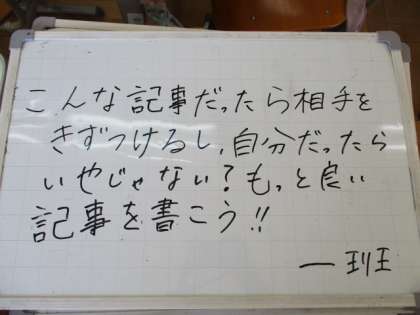 こんな記事だったら相手を
きずつけるし、自分だったら
いやじゃない？もっと良い
記事を書こう!!
一班